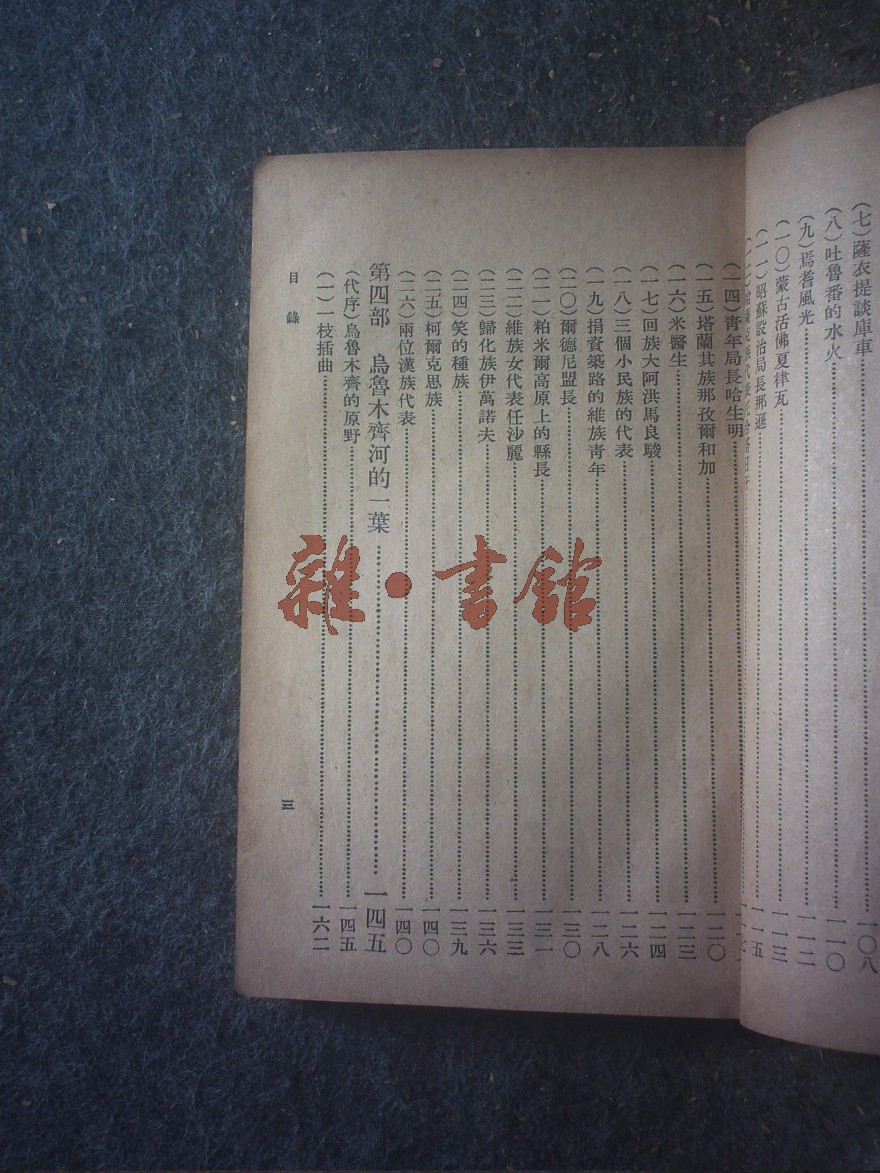 (七)薩衣提談庫車……一〇八
(八)吐魯番的水火……一一〇
(九)焉耆風光……一一二
(一〇)蒙古活佛夏律瓦……一一三
(一一)昭蘇設治局長那遜……一一五
(一四)青年局長哈生明
(一五)塔蘭其族那孜爾和加……一二〇
(一六)米醫生……一二三
(一七)回族大阿洪馬良駿……一二四
(一八)三個小民族的代表……一二六
(一九)捐資築路的維族青年……一二八
(二〇)爾德尼盟長……一三〇
(二一)粕米爾高原上的縣長……一三一
(二二)維族女代表任沙麗……一三三
(二三)歸化族伊萬諾夫……一三六
(二四)笑的種族……一三九
(二五)柯爾克思族……一四〇
(二六)兩位漢族代表……一四〇
第四部 烏魯木齊河的一葉……一四五
(代序)烏魯木齊的原野……一四五
(一)一枝插曲……一六二
目錄
三
雜·書館